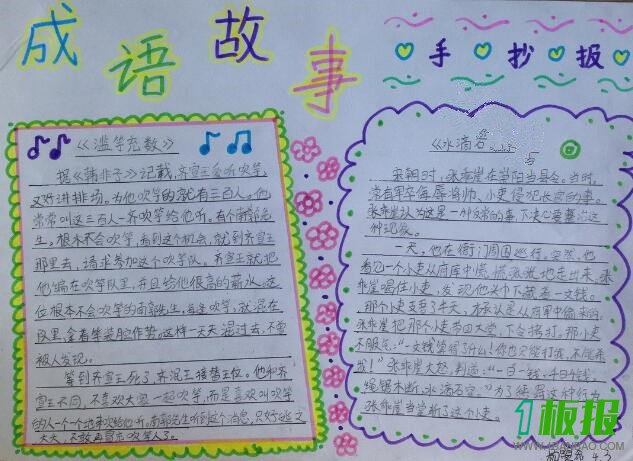 成语故事
手抄报
《滥竽充数》
据《韩非子》记载,齐宣王爱听吹竽,
又好讲排场。为他吹竽的就有三百人。他
常常叫这三百人一齐吹竽给他听。有个南郭先
生,根本不会吹竽,看到这个机会,就到齐宣王
那里去,请求参加这个吹竽队。齐宣王就把
他编在吹竽队里,并且给他很高的薪水。这
位根本不会吹竽的南郭先生,每逢吹竽,就混在
队里,拿着竽装腔作势。这样一天天混过去,不曾
被人发现。
等到齐宣王死了,齐湣王接替王位。他和齐
宣王不同,不喜欢大家一起吹竽,而是喜欢叫吹竽
的人一个一个地来吹给他听。南郭先生听到这个消息,只好逃之
夭夭,不敢再冒充吹竽人了。
《水滴石
宋朝时,张乖崖在崇阳当县令。当时,
常有军卒侮辱将帅,小吏侵犯长官的事。
张乖崖认为这是一种反常的事,下决心要整治这
种现象。
一天,他在衙门周围巡行。突然,他
看见一个小吏从府库中慌慌张张地走出来,张
乖崖喝住小吏,发现他头巾下藏着一文钱。
那个小吏支吾了半天,才承认是从府库中偷来的。
张乖崖把那个小吏带回大堂,下令拷打。那小吏
不服气:“一文钱算得了什么!你也只能打我,不能杀
我!”张乖崖大怒,判道:“一日一钱,千日千钱,
绳锯木断,水滴石穿。”为了惩罚这种行为,
张乖崖当堂斩了这个小吏。
1板报
WWW.1BANBAO.COM